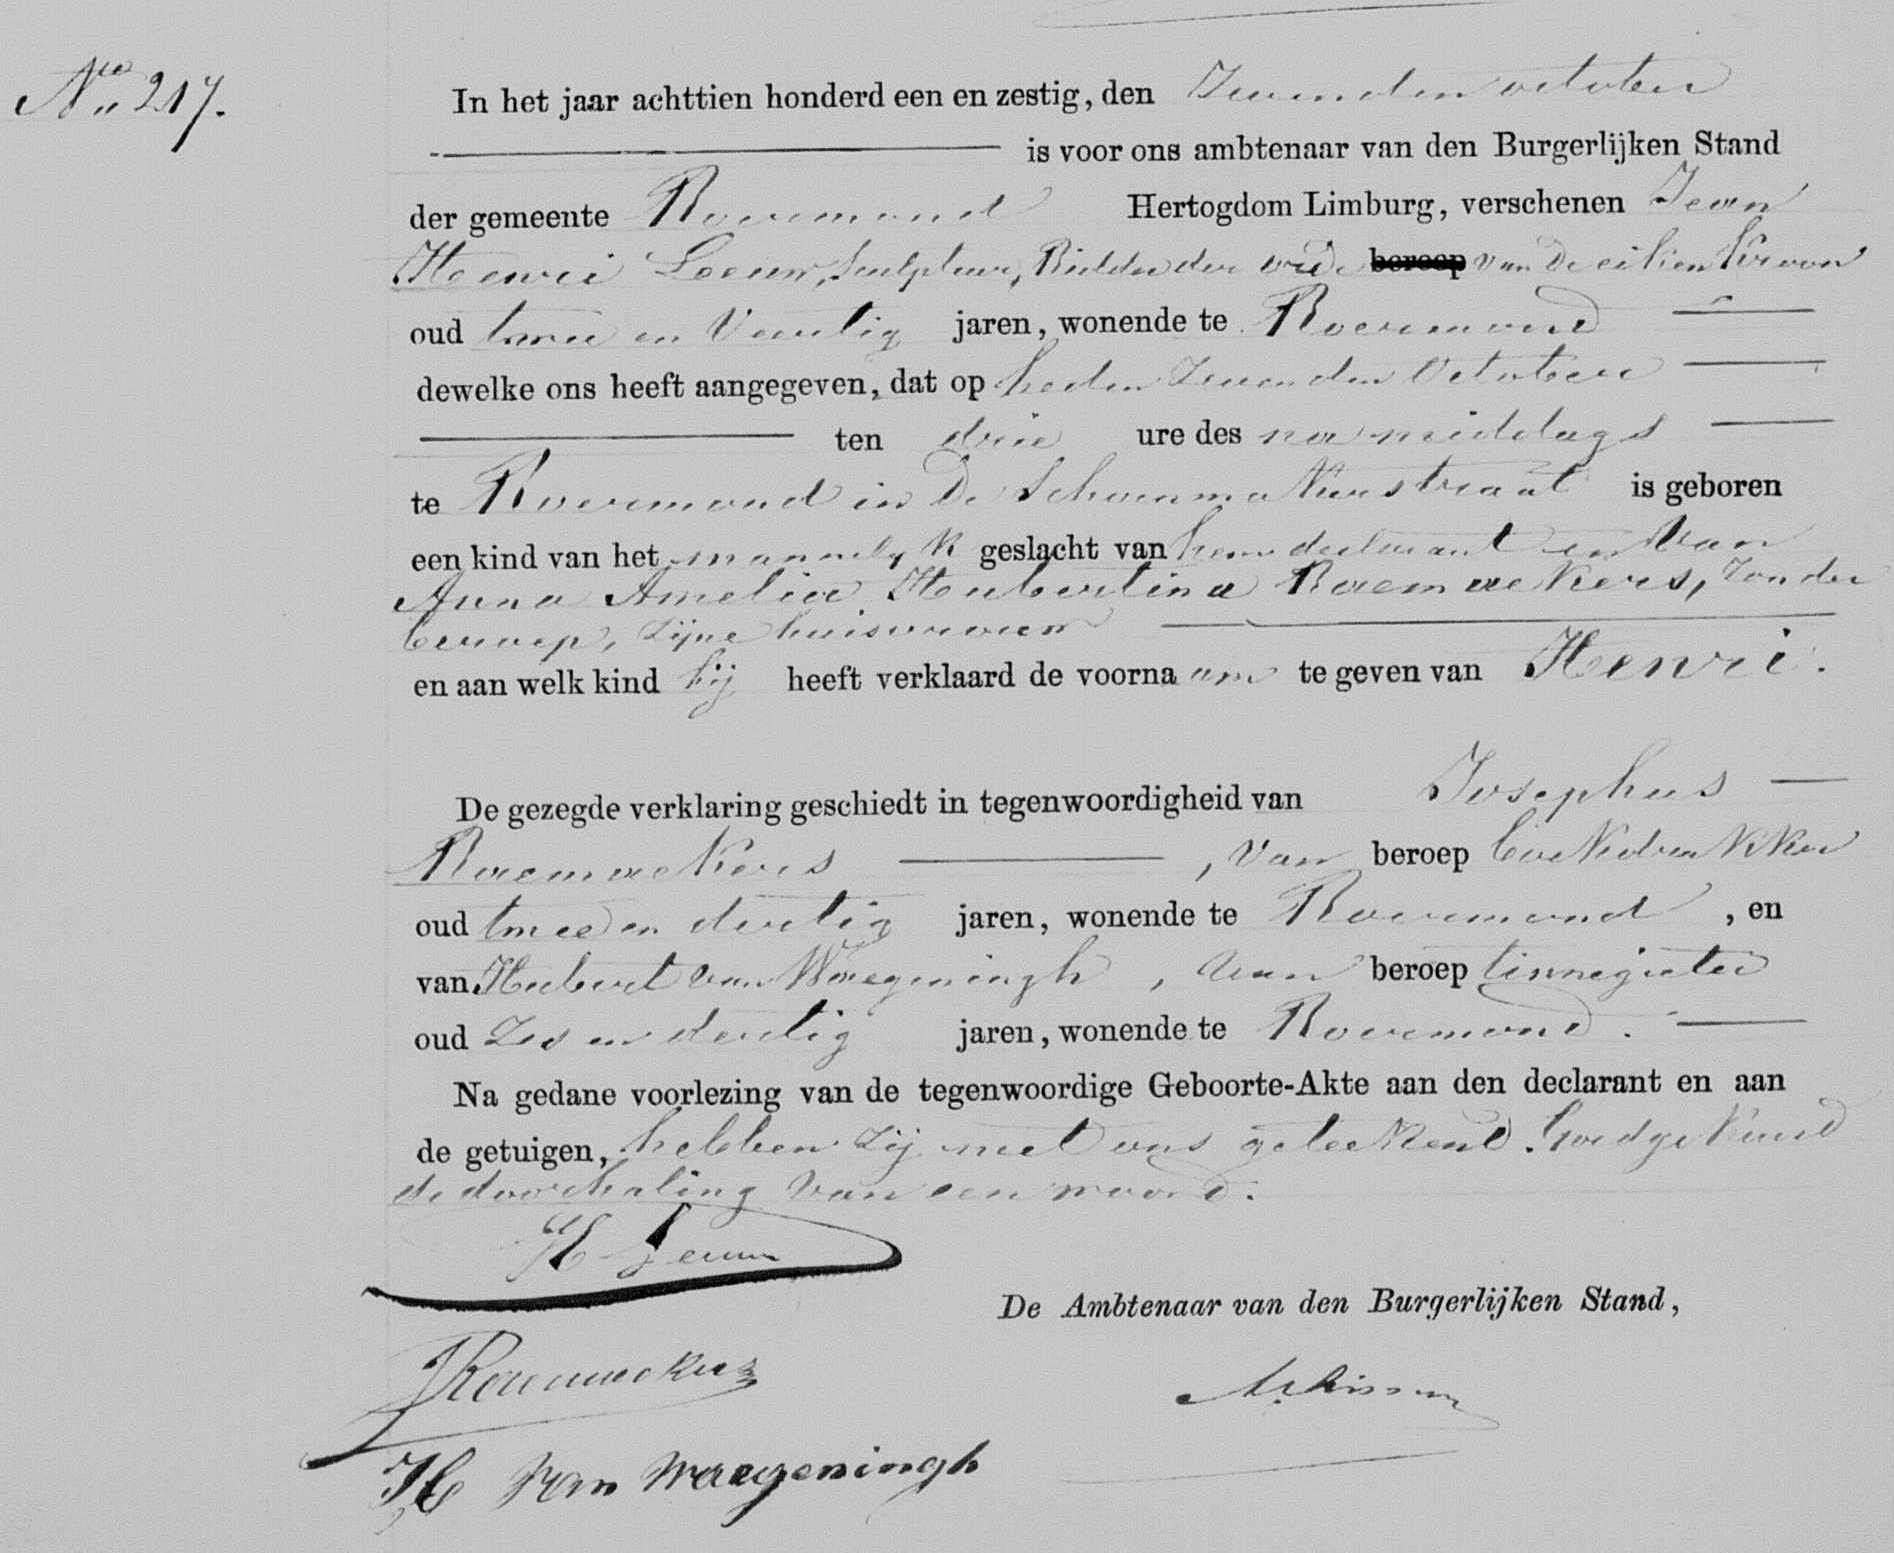 No 217.
In het jaar achttien honderd een en zestig, den Zevenden october
is voor ons ambtenaar van den Burgerlijken Stand
der gemeente Roermond Hertogdom Limburg, verschenen Jean
Henri Leeuw, Sculpteur, Ridder der orde beroep van de eiken Kroon
oud twee en Veertig jaren, wonende te Roermond
dewelke ons heeft aangegeven, dat op heden Zevenden October
ten drie ure des na middags
te Roermond in De Schoenmakersstraat is geboren
een kind van het mannelyk geslacht van hem declarant en van
Anna Amelia Hubertina Raemaekers, Zonder
beroep, zijne huisvrouw
en aan welk kind hij heeft verklaard de voorna am te geven van Henri.
De gezegde verklaring geschiedt in tegenwoordigheid van Josephus
Raemaekers, van beroep boekdrukker
oud twee en dertig jaren, wonende te Roermond, en
van Hubert van Waegeningh, van beroep tinnegieter
oud Zes en dertig jaren, wonende te Roermond.
Na gedane voorlezing van de tegenwoordige Geboorte-Akte aan den declarant en aan
de getuigen, hebben zij met ons geteekend. Goedgekeurd
de doorhaling van een woord.
H Leeuw
De Ambtenaar van den Burgerlijken Stand,
JRaemaekers
H Van Waegeningh